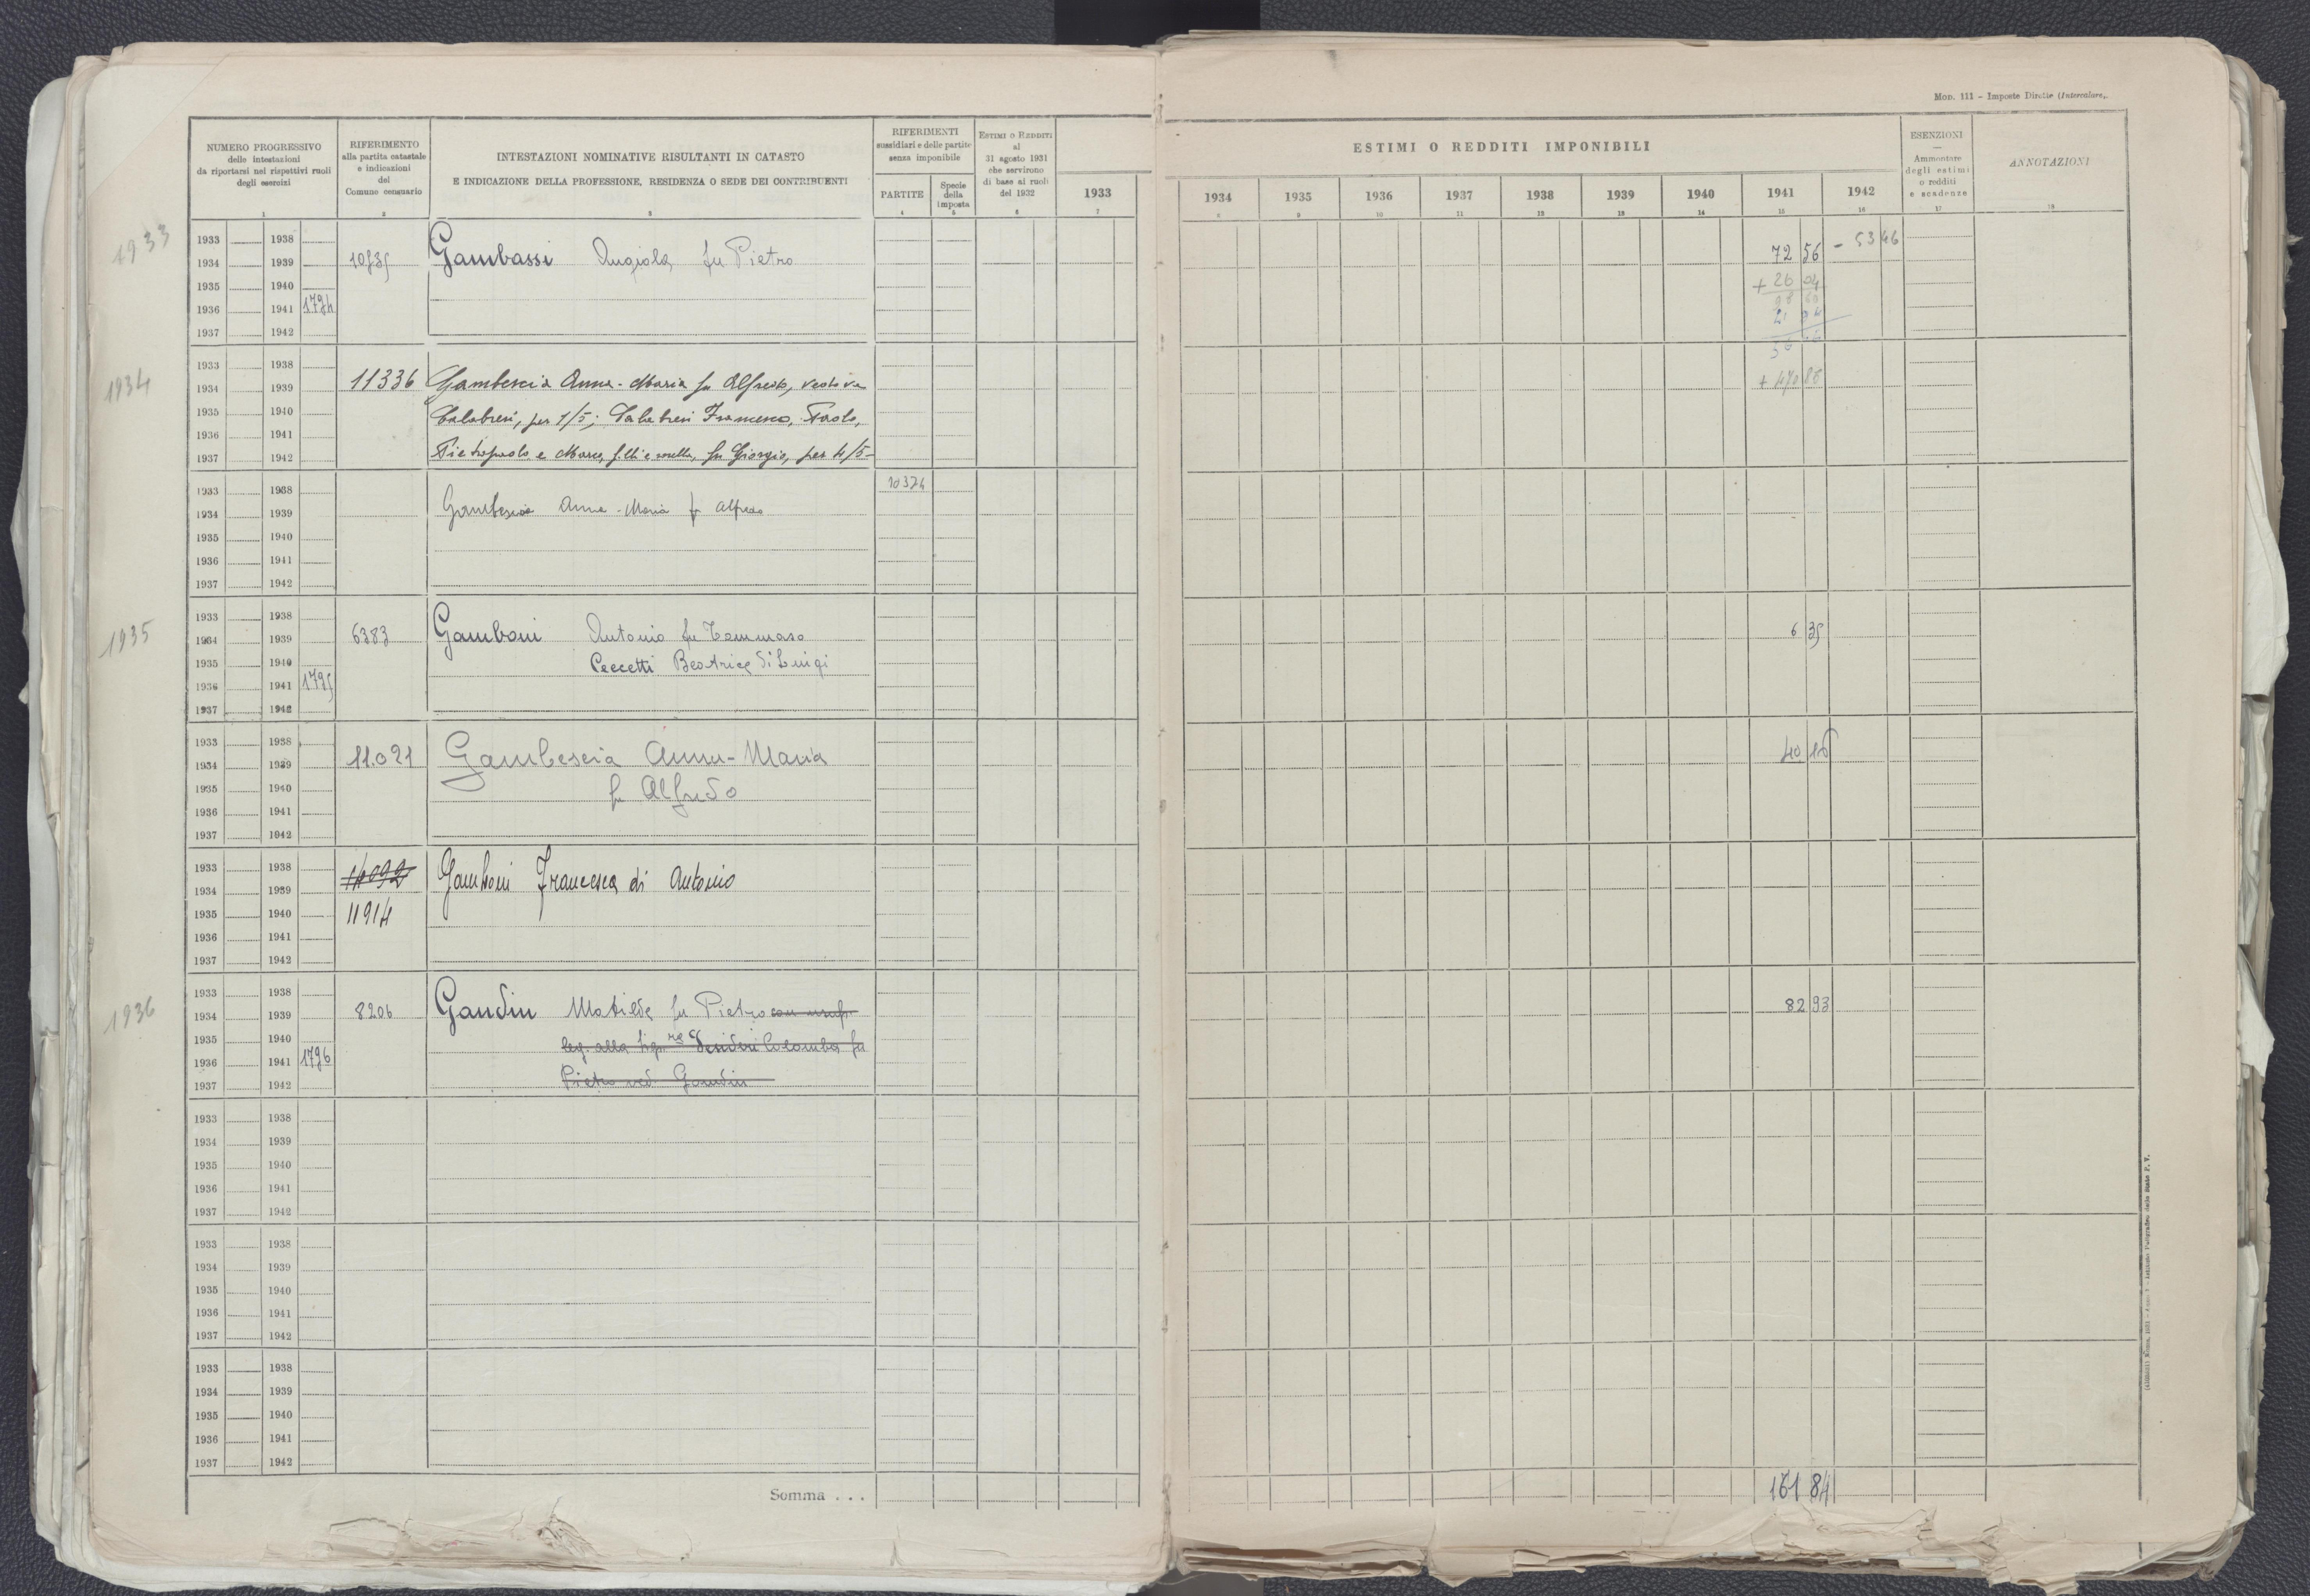 MOD. 111 - Imposte Dirette (Intercalare).
NUMERO PROGRESSIVO
delle intestazioni
da riportarsi nei rispettivi ruoli
degli esercizi
RIFERIMENTO
alla partita catastale
e indicazioni
del
Comune censuario
INTESTAZIONI NOMINATIVE RISULTANTI IN CATASTO
E INDICAZIONE DELLA PROFESSIONE, RESIDENZA O SEDE DEI CONTRIBUENTI
RIFERIMENTI
sussidiari e delle partite
senza imponibile
PARTITE
Specie
della
imposta
ESTIMI O REDDITI
al
31 agosto 1931
che servirono
di base ai ruoli
del 1932
1933
ESTIMI O REDDITI IMPONIBILI
1934 1935 1936 1937 1938 1939 1940 1941 1942
ESENZIONI
Ammontare
degli estimi
o redditi
e scadenze
ANNOTAZIONI
1 2 3 4 5 6 7 8 9 10 11 12 13 14 15 16 17 18
1933
1933 1938
1934 1939 Gambassi Angiola fu Pietro 72 56 - 53 46
1935 1940 + 26 04
1936 1941 1794
1937 1942
1934
1933 1938
1934 1939 11336 Gambescia Anna-Maria fu Alfredo, vedova
1935 1940 Calabresi, per 1/5; Calabresi Francesco, Paolo,
1936 1941
1937 1942 Pietropaolo e Marco, f.lli e sorella, fu Giorgio, per 4/5
1933 1938 10374
1934 1939 Gambescia Anna-Maria fu Alfredo
1935 1940
1936 1941
1937 1942
1935
1933 1938
1934 1939 6383 Gamboni Antonio fu Tommaso 6 35
1935 1940 Ceccetti Beatrice di Luigi
1936 1941 1795
1937 1942
1933 1938
1934 1939 11.021 Gambescia Anna-Maria
1935 1940 fu Alfredo
1936 1941
1937 1942
1933 1938
1934 1939 Gamboni Francesca di Antonio
1935 1940 11914
1936 1941
1937 1942
1936
1933 1938
1934 1939 8206 Gandin Matilde fu Pietro con usuf. 82 93
1935 1940 leg. alla Sig.ra Desideri Colomba fu
1936 1941 1796
1937 1942 Pietro ved. Gandin
1933 1938
1934 1939
1935 1940
1936 1941
1937 1942
1933 1938
1934 1939
1935 1940
1936 1941
1937 1942
1933 1938
1934 1939
1935 1940
1936 1941
1937 1942
Somma . . . 161 84